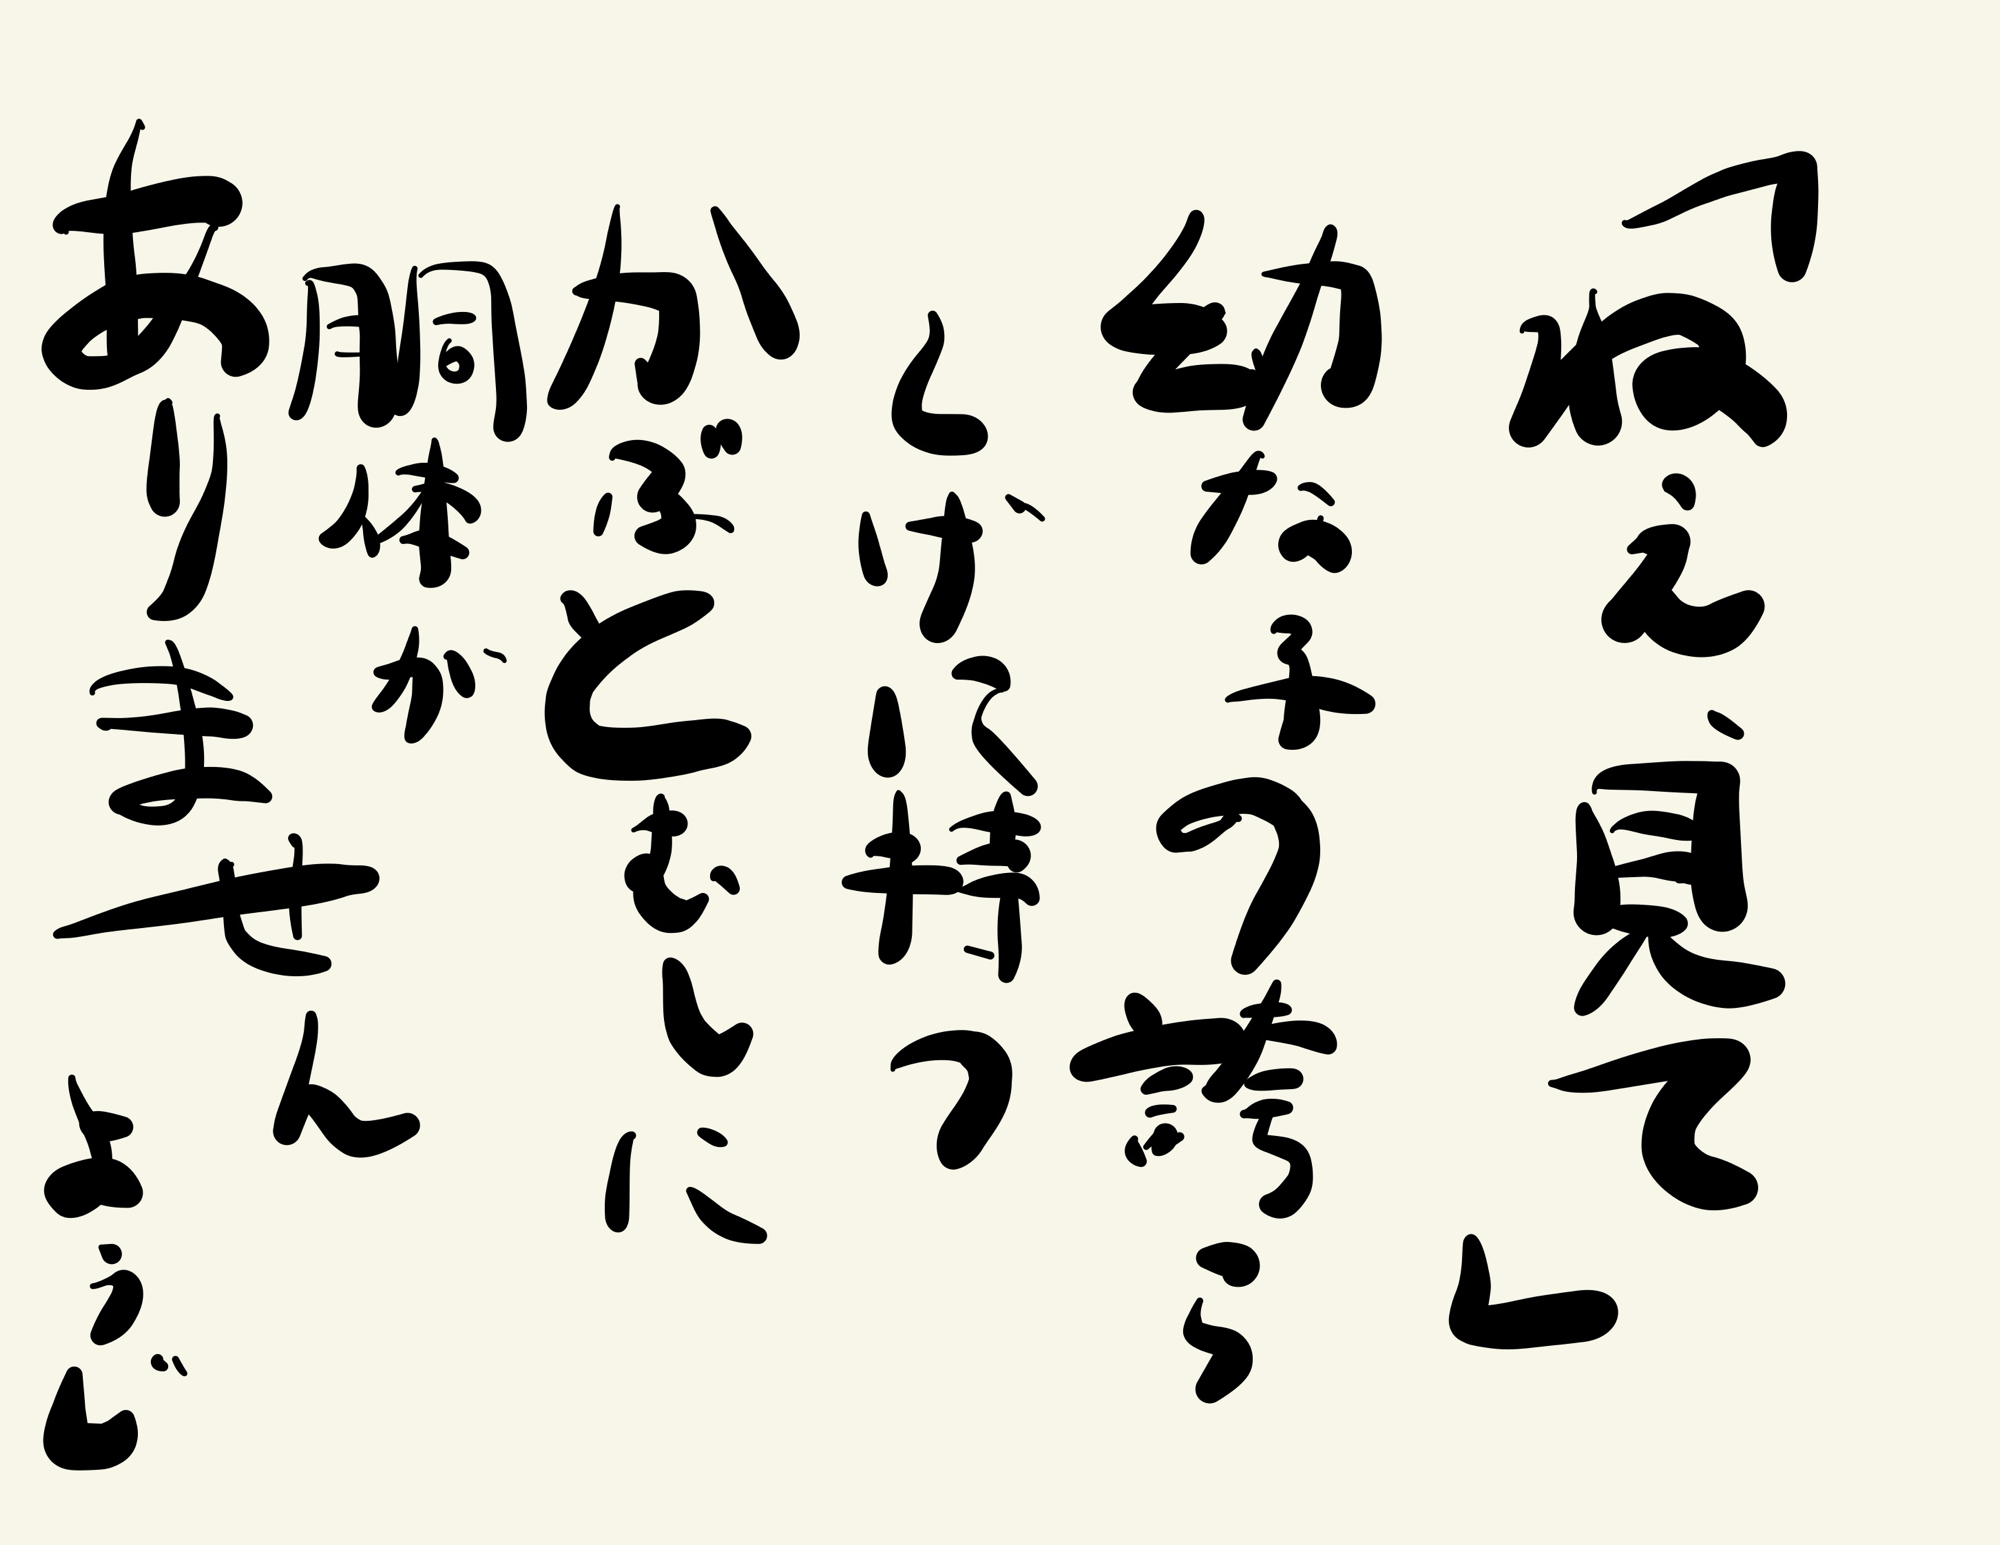 「ねえ、見て」
幼な子の誇ら
しげに持つ
かぶとむしに
胴体が
ありません
ようじ